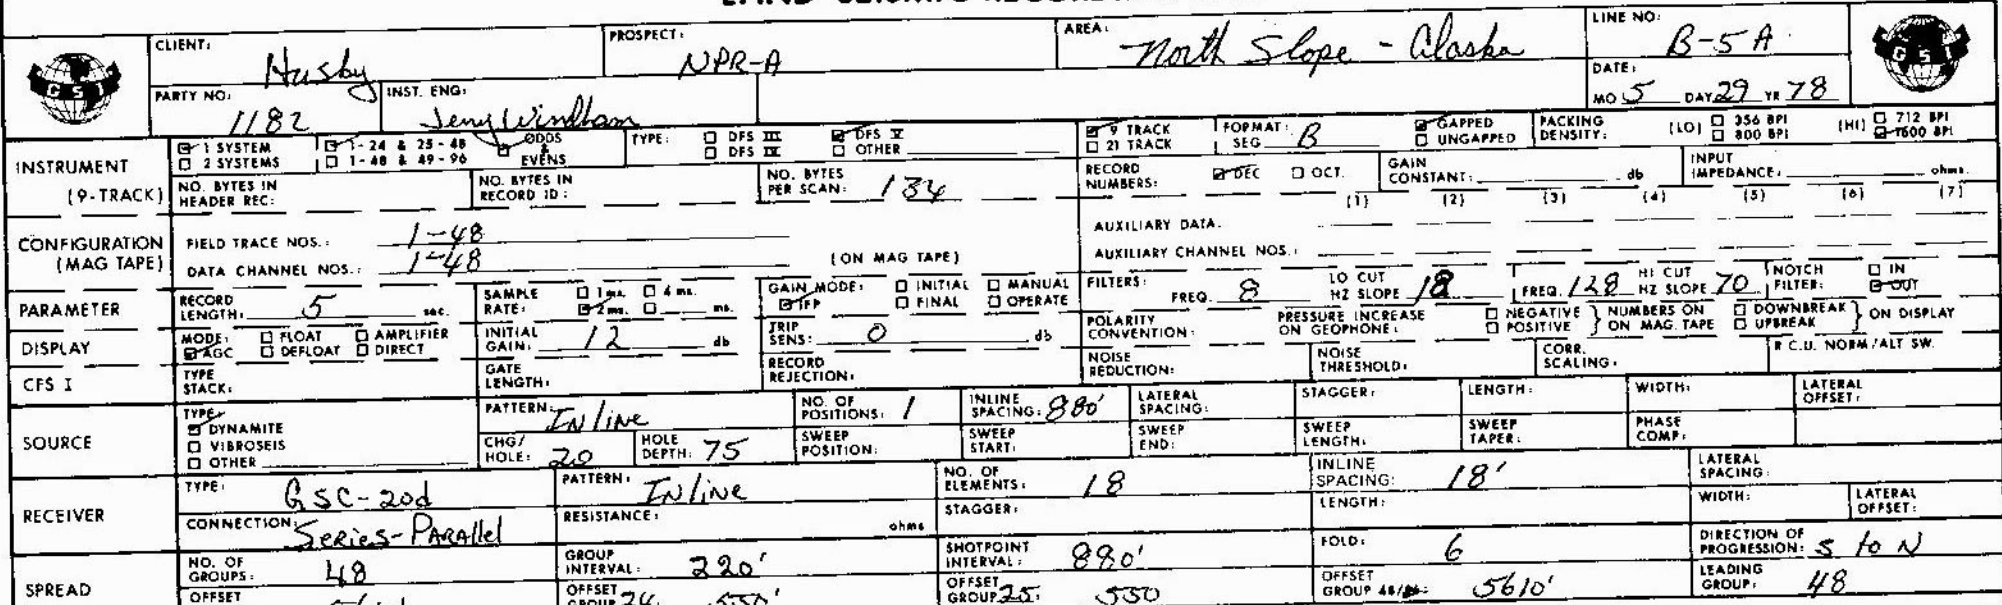 CLIENT: Husby PROSPECT: NPR-A AREA: North Slope - Alaska LINE NO: B-5A
GSI
PARTY NO: 1182 INST. ENG: Jerry Windham DATE: MO 5 DAY 29 YR 78
GSI
INSTRUMENT (9-TRACK) ☑ 1 SYSTEM ☑ 1-24 & 25-48 ☑ ODDS & EVENS TYPE: ☐ DFS III ☑ DFS V ☑ 9 TRACK FORMAT: SEG B ☑ GAPPED PACKING DENSITY: (LO) ☐ 356 BPI (HI) ☐ 712 BPI
☐ 2 SYSTEMS ☐ 1-48 & 49-96 ☐ DFS IV ☐ OTHER ☐ 21 TRACK ☐ UNGAPPED ☐ 800 BPI ☑ 1600 BPI
NO. BYTES IN HEADER REC: NO. BYTES IN RECORD ID: NO. BYTES PER SCAN: 134 RECORD NUMBERS: ☑ DEC ☐ OCT. GAIN CONSTANT: db INPUT IMPEDANCE: ohms.
(1) (2) (3) (4) (5) (6) (7)
CONFIGURATION (MAG TAPE) FIELD TRACE NOS.: 1-48 AUXILIARY DATA.
DATA CHANNEL NOS.: 1-48 (ON MAG TAPE) AUXILIARY CHANNEL NOS.:
PARAMETER RECORD LENGTH: 5 sec. SAMPLE RATE: ☐ 1 ms. ☐ 4 ms. ☑ 2 ms. ☐ ms. GAIN MODE: ☐ INITIAL ☐ MANUAL ☑ IFP ☐ FINAL ☐ OPERATE FILTERS: FREQ. 8 LO CUT HZ SLOPE 18 FREQ. 128 HI CUT HZ SLOPE 70 NOTCH FILTER: ☐ IN ☑ OUT
DISPLAY MODE: ☐ FLOAT ☐ AMPLIFIER ☑ AGC ☐ DEFLOAT ☐ DIRECT INITIAL GAIN: 12 db TRIP SENS: 0 db POLARITY CONVENTION: PRESSURE INCREASE ON GEOPHONE: ☐ NEGATIVE ☐ POSITIVE } NUMBERS ON ON MAG. TAPE ☐ DOWNBREAK ☐ UPBREAK } ON DISPLAY
CFS I TYPE STACK: GATE LENGTH: RECORD REJECTION: NOISE REDUCTION: NOISE THRESHOLD: CORR. SCALING: R.C.U. NORM/ALT SW.
SOURCE TYPE: ☑ DYNAMITE ☐ VIBROSEIS ☐ OTHER PATTERN: Inline NO. OF POSITIONS: 1 INLINE SPACING: 880' LATERAL SPACING: STAGGER: LENGTH: WIDTH: LATERAL OFFSET:
CHG/HOLE: 20 HOLE DEPTH: 75 SWEEP POSITION: SWEEP START: SWEEP END: SWEEP LENGTH: SWEEP TAPER: PHASE COMP:
RECEIVER TYPE: GSC-20d PATTERN: Inline NO. OF ELEMENTS: 18 INLINE SPACING: 18' LATERAL SPACING:
CONNECTION: Series-Parallel RESISTANCE: ohms STAGGER: LENGTH: WIDTH: LATERAL OFFSET:
SPREAD NO. OF GROUPS: 48 GROUP INTERVAL: 220' SHOTPOINT INTERVAL: 880' FOLD: 6 DIRECTION OF PROGRESSION: S to N
OFFSET OFFSET GROUP 24: 550' OFFSET GROUP 25: 550 OFFSET GROUP 48/96: 5610' LEADING GROUP: 48